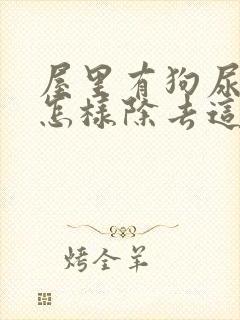 屋里有狗尿
怎样除去這
烤全羊